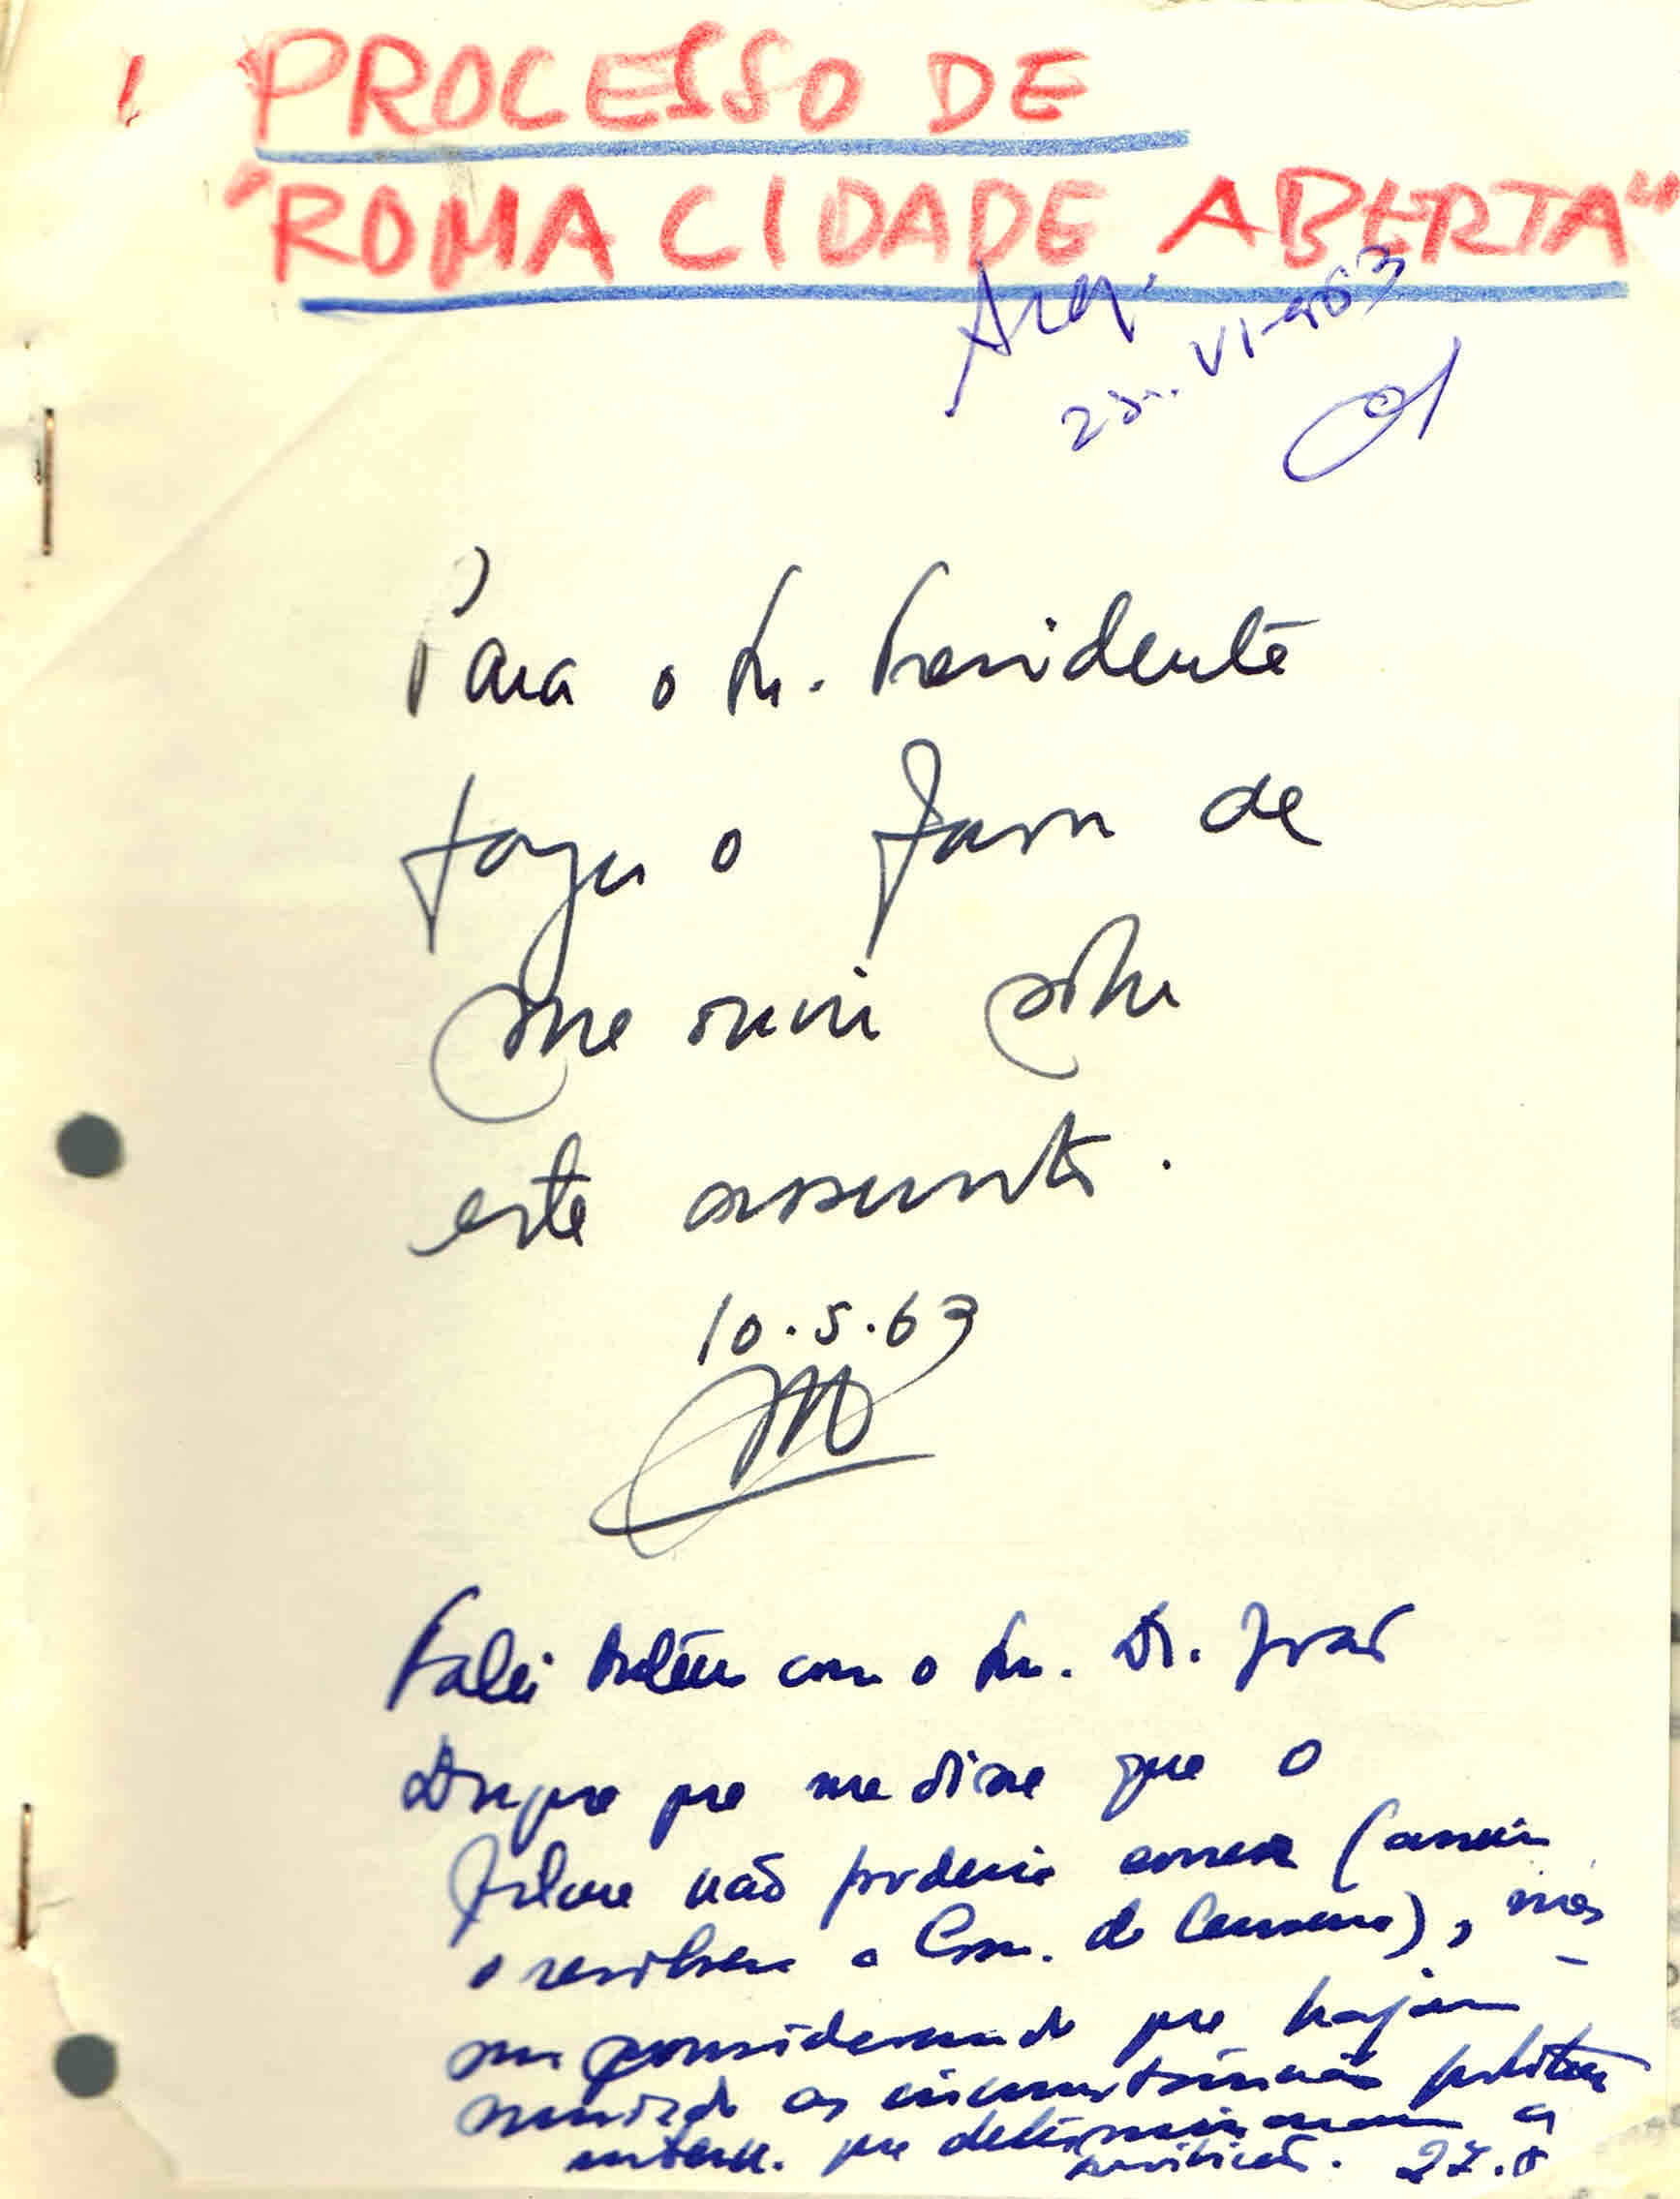 PROCESSO DE
"ROMA CIDADE ABERTA"
Arq.
Para o Sr. Presidente
fazer o favor de
me ouvir sobre
este assunto.
10.5.63
Falei ontem com o Sr. Dr. José
que me disse que o
filme não poderia correr (assim
o resolveu a Com. de Censura), mas
considerando que hajam
as circunstâncias políticas
que determinaram a
27.8